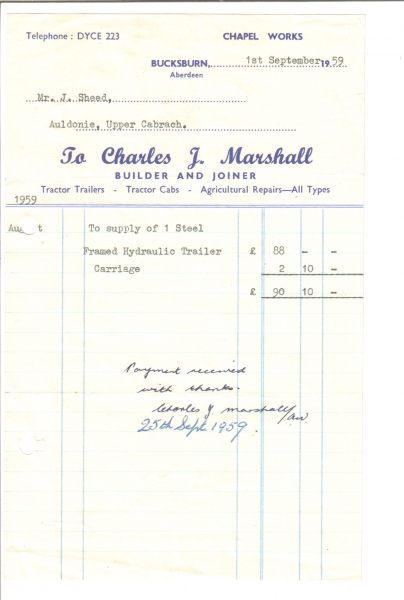 Telephone : DYCE 223
CHAPEL WORKS
BUCKSBURN, 1st September 1959
Aberdeen
Mr. J. Sheed,
Auldonie, Upper Cabrach.
To Charles J. Marshall
BUILDER AND JOINER
Tractor Trailers - Tractor Cabs - Agricultural Repairs—All Types
1959
To supply of 1 Steel
Framed Hydraulic Trailer £ 88 - -
Carriage 2 10 -
£ 90 10 -
Payment received
with thanks.
Charles J. Marshall
25th Sept. 1959.